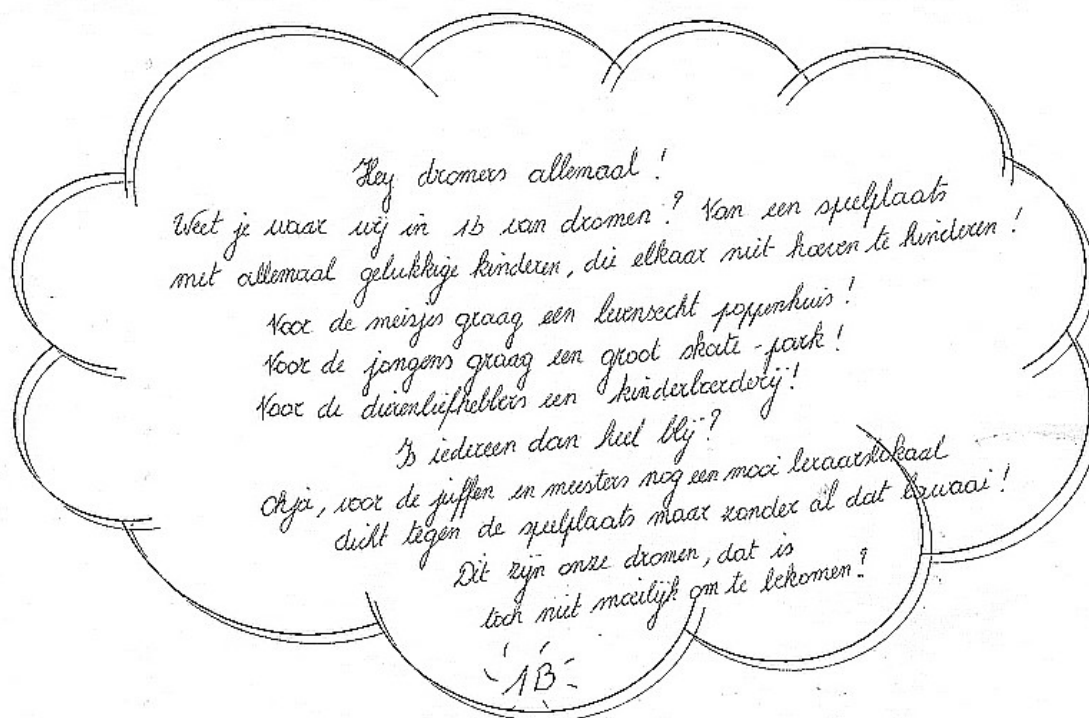 Hey dromers allemaal !
Weet je waar wij in 1b van dromen ? Van een speelplaats
met allemaal gelukkige kinderen, die elkaar niet hoeven te hinderen !
Voor de meisjes graag een levensecht poppenhuis !
Voor de jongens graag een groot skate-park !
Voor de dierenliefhebbers een kinderboerderij !
Is iedereen dan heel blij ?
Ohja, voor de juffen en meesters nog een mooi leraarslokaal
dicht tegen de speelplaats maar zonder al dat lawaai !
Dit zijn onze dromen, dat is
toch niet moeilijk om te bekomen ?
1B